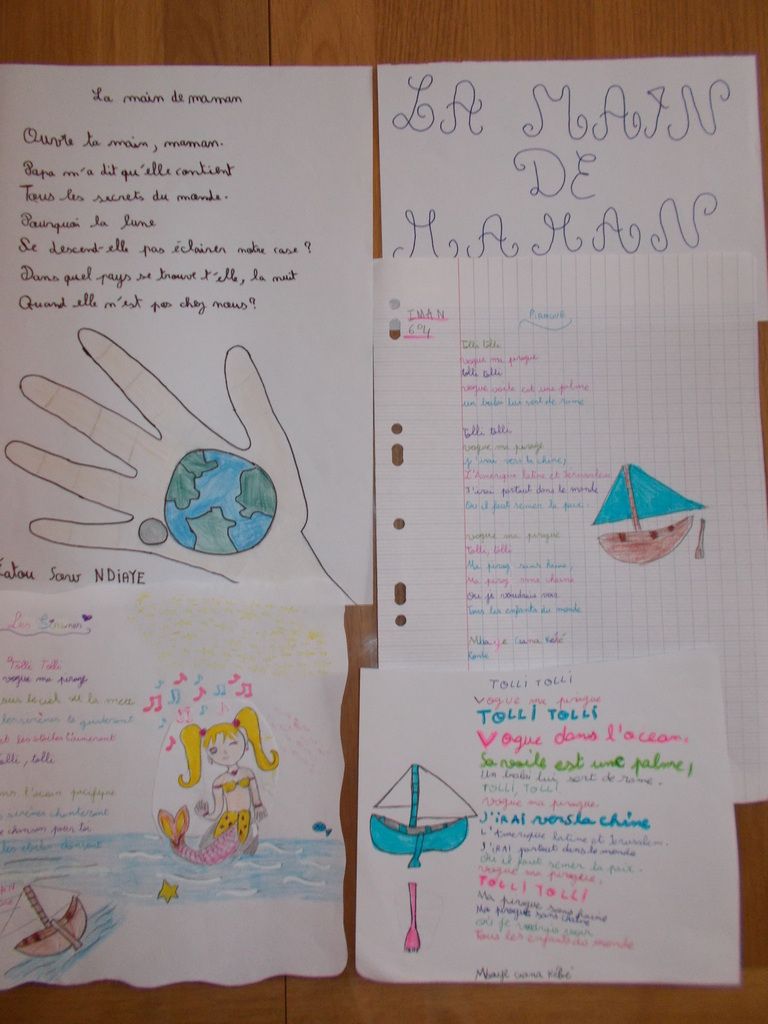 La main de maman
Ouvre ta main, maman.
Papa m'a dit qu'elle contient
Tous les secrets du monde.
Pourquoi la lune
Se descend-elle pas éclairer notre case ?
Dans quel pays se trouve t'elle, la nuit
Quand elle n'est pas chez nous ?
Fatou Sow NDIAYE
LA MAIN
DE
MAMAN
IMAN
6°4
Tolli tolli
vogue ma pirogue
tolli tolli
vogue voile est une palme
un baba lui sert de rame
Tolli tolli
vogue ma pirogue
j'irai vers la chine,
L'Amérique latine et Jerusalem
J'irai partout dans le monde
Où il faut semer la paix.
vogue ma pirogue
Tolli, tolli
Ma pirog sans haine,
Ma pirog sans chaine
Où je voudrais voir
Tous les enfants du monde
Mbaye Gana Kébé
Les Sirènes
Tolli Tolli
vogue ma pirog
sous le ciel de la mer
les sirènes te guideront
et les étoiles t'aimeront
tolli, tolli
l'océan pacifique
sirènes chanteront
chanson pour toi
les étoiles dansent
TOLLI TOLLI
Vogue ma pirogue
TOLLI TOLLI
Vogue dans l'ocean.
Sa voile est une palme,
Un baba lui sert de rame.
TOLLI, TOLLI.
vogue ma pirogue.
J'iRAI vers la chine
L'Amérique latine et Jerusalem.
J'iRAI partout dans le monde
Où il faut semer la paix.
vogue ma pirogue.
TOLLI TOLLI
Ma pirogue sans haine
Ma pirogue sans chaine
Où je voudrais voir
Tous les enfants du monde
Mbayé Gana Kébé